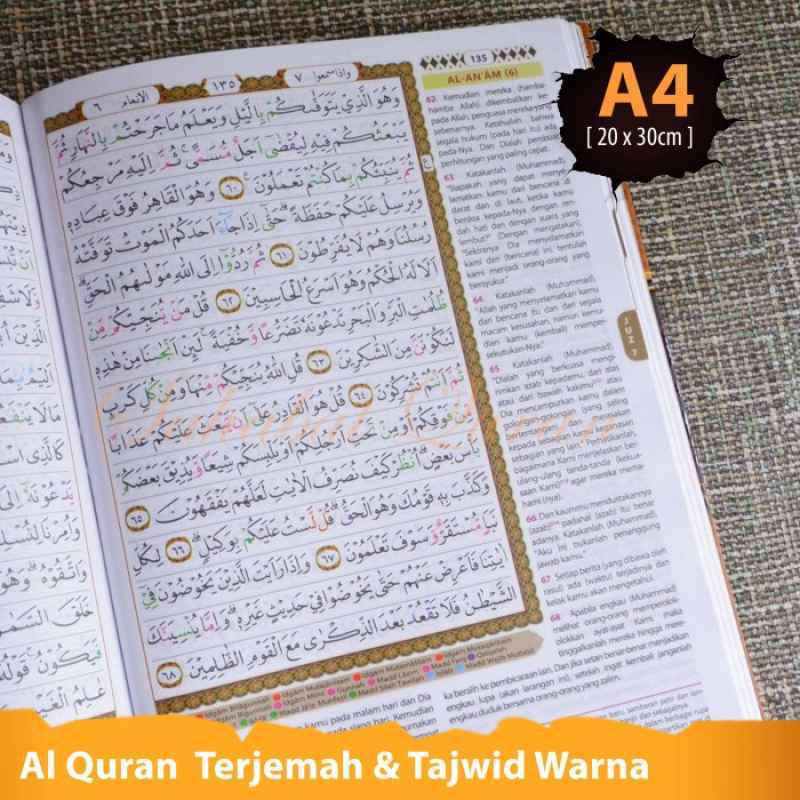 A4
[ 20 x 30cm ]
135
AL-AN'ÂM (6)
٦ الانعام ١٣٥ واذاسمعوا ٧
وَهُوَ الَّذِيْ يَتَوَفّٰىكُمْ بِالَّيْلِ وَيَعْلَمُ مَا جَرَحْتُمْ بِالنَّهَارِ ثُمَّ
يَبْعَثُكُمْ فِيْهِ لِيُقْضٰٓى اَجَلٌ مُّسَمًّى ثُمَّ اِلَيْهِ مَرْجِعُكُمْ
ثُمَّ يُنَبِّئُكُمْ بِمَا كُنْتُمْ تَعْمَلُوْنَ ٦٠ وَهُوَ الْقَاهِرُ فَوْقَ عِبَادِهٖ
وَيُرْسِلُ عَلَيْكُمْ حَفَظَةً حَتّٰٓى اِذَا جَاۤءَ اَحَدَكُمُ الْمَوْتُ تَوَفَّتْهُ
رُسُلُنَا وَهُمْ لَا يُفَرِّطُوْنَ ٦١ ثُمَّ رُدُّوْٓا اِلَى اللّٰهِ مَوْلٰىهُمُ الْحَقِّ
اَلَا لَهُ الْحُكْمُ وَهُوَ اَسْرَعُ الْحَاسِبِيْنَ ٦٢ قُلْ مَنْ يُّنَجِّيْكُمْ مِّنْ
ظُلُمٰتِ الْبَرِّ وَالْبَحْرِ تَدْعُوْنَهٗ تَضَرُّعًا وَّخُفْيَةً لَىِٕنْ اَنْجٰىنَا مِنْ هٰذِهٖ
لَنَكُوْنَنَّ مِنَ الشّٰكِرِيْنَ ٦٣ قُلِ اللّٰهُ يُنَجِّيْكُمْ مِّنْهَا وَمِنْ كُلِّ كَرْبٍ
ثُمَّ اَنْتُمْ تُشْرِكُوْنَ ٦٤ قُلْ هُوَ الْقَادِرُ عَلٰٓى اَنْ يَّبْعَثَ عَلَيْكُمْ عَذَابًا
مِّنْ فَوْقِكُمْ اَوْ مِنْ تَحْتِ اَرْجُلِكُمْ اَوْ يَلْبِسَكُمْ شِيَعًا وَّيُذِيْقَ بَعْضَكُمْ
بَأْسَ بَعْضٍ اُنْظُرْ كَيْفَ نُصَرِّفُ الْاٰيٰتِ لَعَلَّهُمْ يَفْقَهُوْنَ ٦٥
وَكَذَّبَ بِهٖ قَوْمُكَ وَهُوَ الْحَقُّ قُلْ لَّسْتُ عَلَيْكُمْ بِوَكِيْلٍ ٦٦ لِكُلِّ
نَبَاٍ مُّسْتَقَرٌّ وَّسَوْفَ تَعْلَمُوْنَ ٦٧ وَاِذَا رَاَيْتَ الَّذِيْنَ يَخُوْضُوْنَ فِيْٓ
اٰيٰتِنَا فَاَعْرِضْ عَنْهُمْ حَتّٰى يَخُوْضُوْا فِيْ حَدِيْثٍ غَيْرِهٖ وَاِمَّا يُنْسِيَنَّكَ
الشَّيْطٰنُ فَلَا تَقْعُدْ بَعْدَ الذِّكْرٰى مَعَ الْقَوْمِ الظّٰلِمِيْنَ ٦٨
62. Kemudian mereka (hamba-
hamba Allah) dikembalikan ke-
pada Allah, penguasa mereka yang
sebenarnya. Ketahuilah bahwa
segala hukum (pada hari itu) ada
pada-Nya. Dan Dialah pembuat
perhitungan yang paling cepat.
63 Katakanlah (Muhammad),
"Siapakah yang dapat menye-
lamatkan kamu dari bencana di
darat dan di laut, ketika kamu
berdoa kepada-Nya dengan ren-
dah hati dan dengan suara yang
lembut?" (Dengan mengatakan),
"Sekiranya Dia menyelamatkan
kami dari (bencana) ini, tentulah
kami menjadi orang-orang yang
bersyukur."
64 Katakanlah (Muhammad),
"Allah yang menyelamatkan kamu
dari bencana itu dan dari segala
macam kesusahan, namun kemu-
dian kamu (kembali) memper-
sekutukan-Nya."
65 Katakanlah (Muhammad),
"Dialah yang berkuasa mengi-
rimkan azab kepadamu, dari atas
atau dari bawah kakimu atau
Dia mencampurkan kamu dalam
golongan-golongan (yang saling
bertentangan) dan merasakan
kepada sebagian kamu keganasan
sebagian yang lain." Perhatikanlah,
bagaimana Kami menjelaskan ber-
ulang-ulang tanda-tanda (kekua-
saan Kami) agar mereka mema-
hami(nya).
66 Dan kaummu mendustakannya
(azab) padahal (azab) itu benar
adanya. Katakanlah (Muhammad),
"Aku ini bukanlah penanggung
jawab kamu."
67 Setiap berita (yang dibawa oleh
rasul) ada (waktu) terjadinya dan
kelak kamu akan mengetahui.
68 Apabila engkau (Muhammad)
melihat orang-orang memperolok-
olokkan ayat-ayat Kami maka
tinggalkanlah mereka hingga mere-
ka beralih ke pembicaraan lain. Dan jika setan benar-benar menjadikan
engkau lupa (akan larangan ini), setelah ingat kembali janganlah
engkau duduk bersama orang-orang yang zalim.
JUZ 7
kamu pada malam hari dan Dia
siang hari. Kemudian
Al Quran Terjemah & Tajwid Warna